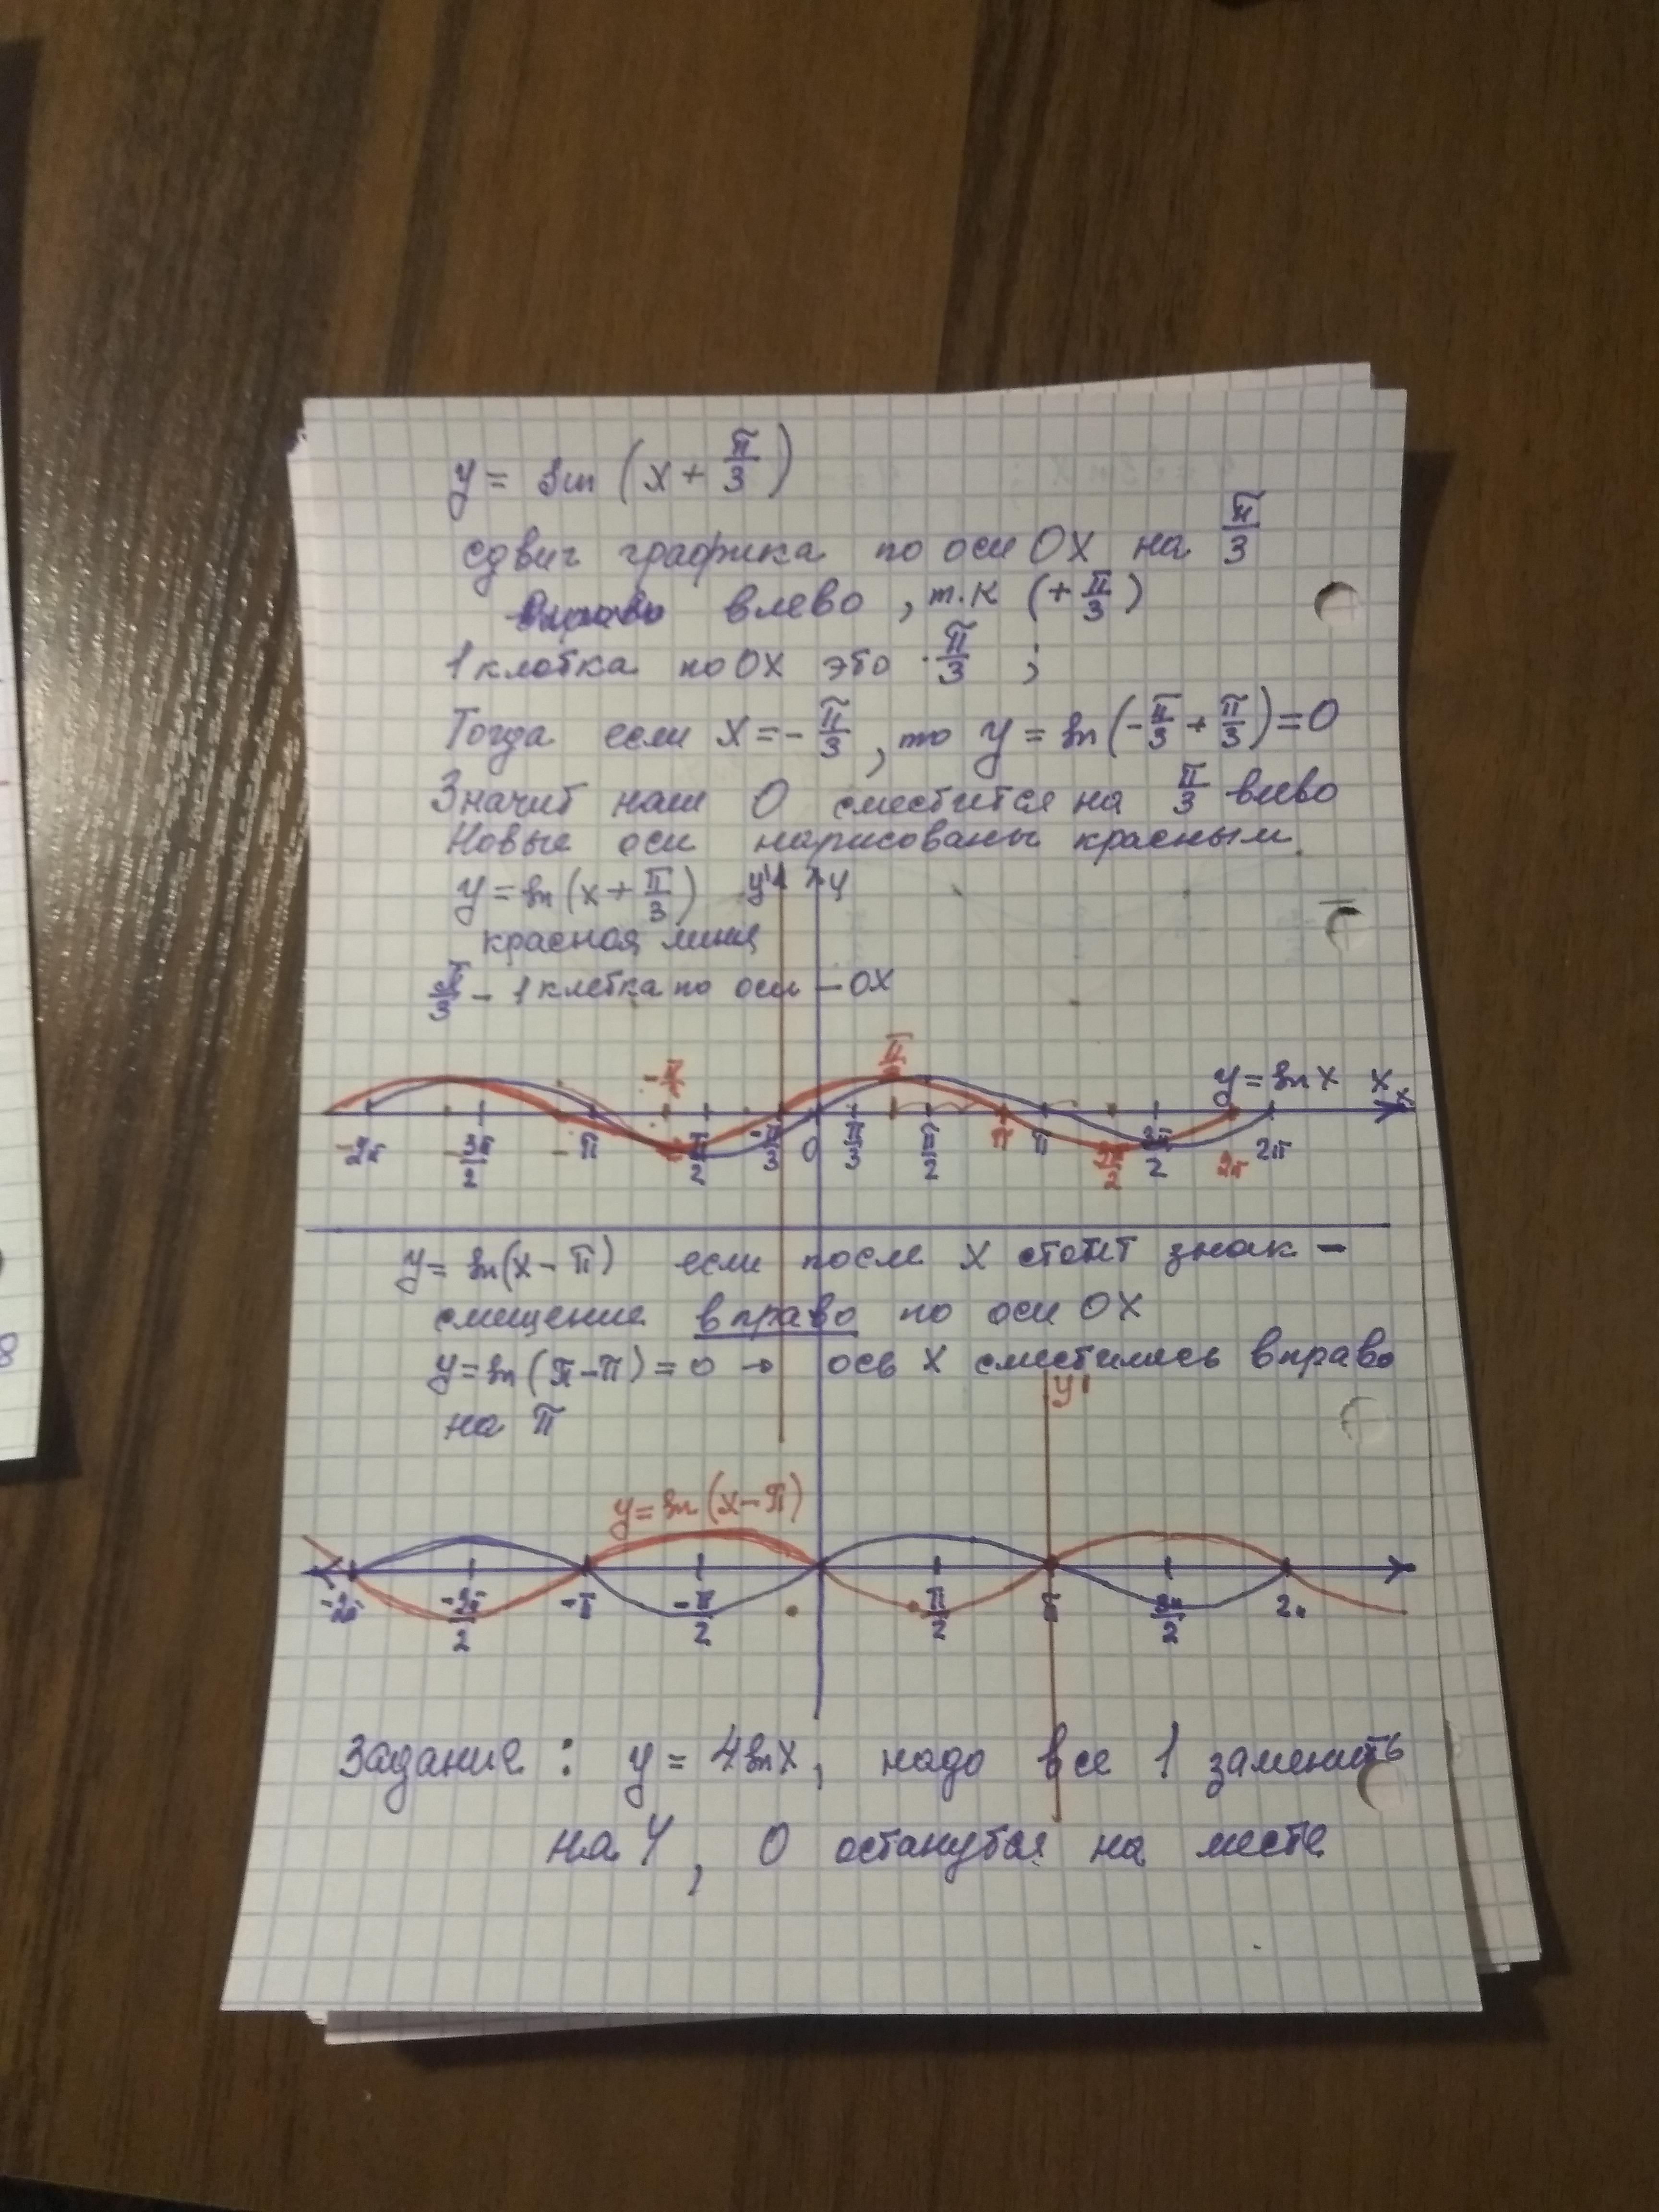 y = sin (x + π/3)
сдвиг графика по оси OX на π/3
влево, т.к (+π/3)
1 клетка по OX это π/3 ;
Тогда если x = -π/3, то y = sin(-π/3 + π/3) = 0
Значит наш 0 сместится на π/3 влево
Новые оси нарисованы красным.
y = sin(x + π/3) y' y
красная линия
π/3 - 1 клетка по оси - OX
π/2
y = sin x x x
-2π -3π/2 -π -π/2 -π/3 0 π/3 π/2 π π 3π/2 3π/2 2π 2π
y = sin(x - π) если после x стоит знак -
смещение вправо по оси OX
y = sin(π - π) = 0 → ось x сместилась вправо
на π
y'
y = sin(x - π)
-2π -3π/2 -π -π/2 π/2 π 3π/2 2π
Задание: y = 4 sin x, надо все 1 заменить
на 4, 0 останутся на месте